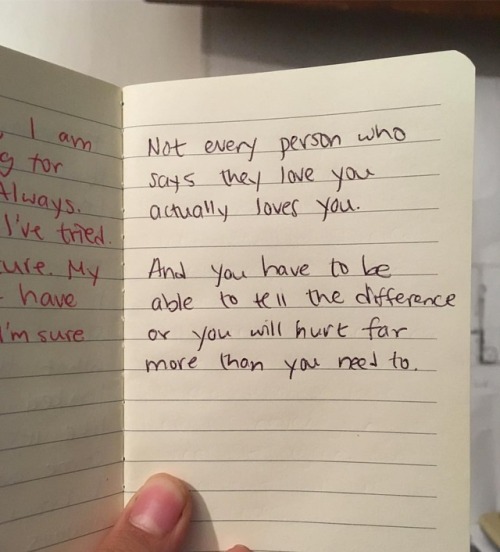 I am
for
Always.
I've tried.
My
have
I'm sure
Not every person who
says they love you
actually loves you.
And you have to be
able to tell the difference
or you will hurt far
more than you need to.